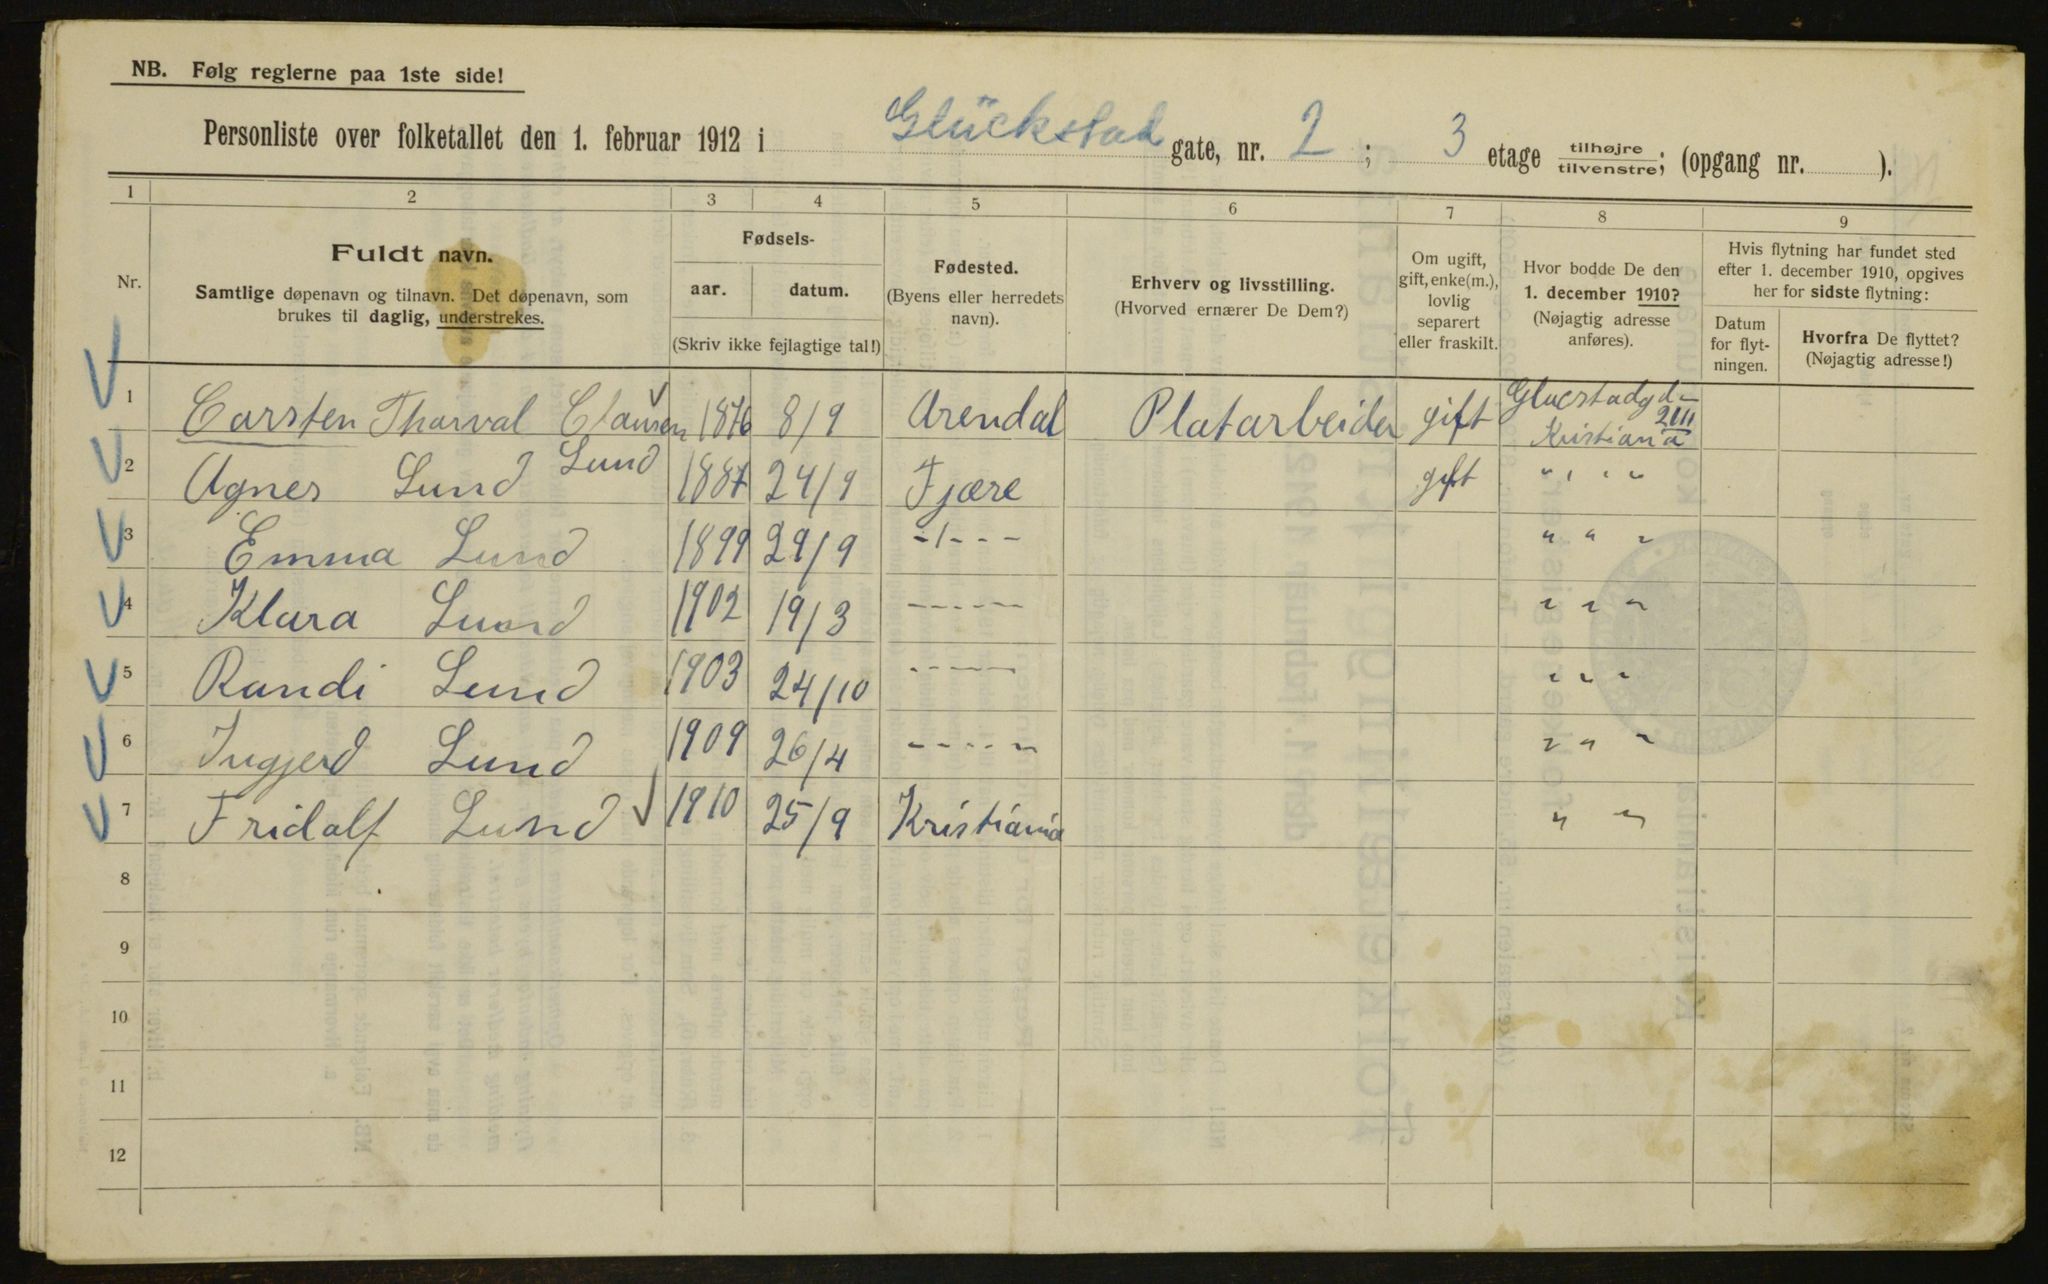 NB. Følg reglerne paa 1ste side!
Personliste over folketallet den 1. februar 1912 i Glückstad gate, nr. 2 ; 3 etage tilhøjre/tilvenstre; (opgang nr. ).
1 2 3 4 5 6 7 8 9
Nr.
Fuldt navn.
Samtlige døpenavn og tilnavn. Det døpenavn, som
brukes til daglig, understrekes.
Fødsels-
aar. datum.
(Skriv ikke fejlagtige tal!)
Fødested.
(Byens eller herredets
navn).
Erhverv og livsstilling.
(Hvorved ernærer De Dem?)
Om ugift,
gift, enke(m.),
lovlig
separert
eller fraskilt.
Hvor bodde De den
1. december 1910?
(Nøjagtig adresse
anføres).
Hvis flytning har fundet sted
efter 1. december 1910, opgives
her for sidste flytning:
Datum
for flyt-
ningen.
Hvorfra De flyttet?
(Nøjagtig adresse!)
1 Carsten Tharval Clausen Lund 1876 8/9 Arendal Platarbeider gift Glucstadgd- 2III Kristiania
2 Agnes Lund 24/9 Fjære gift " " " "
3 Emma Lund 1899 29/9 -/- - - " " "
4 Klara Lund 1902 19/3 - - - - - " " "
5 Randi Lund 1903 24/10 - - - - - " " "
6 Ingjerd Lund 1909 26/4 - - - - - " " "
7 Fridalf Lund 1910 25/9 Kristiania " "
8
9
10
11
12